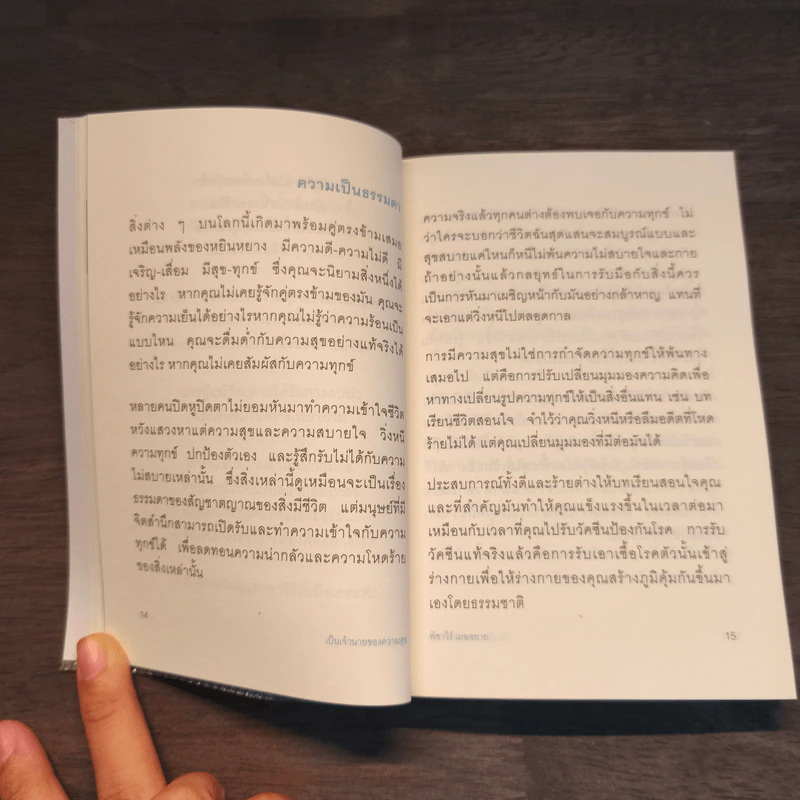 ความเป็นธรรมดา
สิ่งต่าง ๆ บนโลกนี้เกิดมาพร้อมคู่ตรงข้ามเสมอ
เหมือนพลังของหยินหยาง มีความดี-ความไม่ดี มี
เจริญ-เสื่อม มีสุข-ทุกข์ ซึ่งคุณจะนิยามสิ่งหนึ่งได้
อย่างไร หากคุณไม่เคยรู้จักคู่ตรงข้ามของมัน คุณจะ
รู้จักความเย็นได้อย่างไรหากคุณไม่รู้ว่าความร้อนเป็น
แบบไหน คุณจะดื่มด่ำกับความสุขอย่างแท้จริงได้
อย่างไร หากคุณไม่เคยสัมผัสกับความทุกข์
หลายคนปิดหูปิดตาไม่ยอมหันมาทำความเข้าใจชีวิต
หวังแสวงหาแต่ความสุขและความสบายใจ วิ่งหนี
ความทุกข์ ปกป้องตัวเอง และรู้สึกรับไม่ได้กับความ
ไม่สบายเหล่านั้น ซึ่งสิ่งเหล่านี้ดูเหมือนจะเป็นเรื่อง
ธรรมดาของสัญชาตญาณของสิ่งมีชีวิต แต่มนุษย์ที่มี
จิตสำนึกสามารถเปิดรับและทำความเข้าใจกับความ
ทุกข์ได้ เพื่อลดทอนความน่ากลัวและความโหดร้าย
ของสิ่งเหล่านั้น
14
เป็นเจ้านายของความสุข
ความจริงแล้วทุกคนต่างต้องพบเจอกับความทุกข์ ไม่
ว่าใครจะบอกว่าชีวิตฉันสุดแสนจะสมบูรณ์แบบและ
สุขสบายแค่ไหนก็หนีไม่พ้นความไม่สบายใจและกาย
ถ้าอย่างนั้นแล้วกลยุทธ์ในการรับมือกับสิ่งนี้ควร
เป็นการหันมาเผชิญหน้ากับมันอย่างกล้าหาญ แทนที่
จะเอาแต่วิ่งหนีไปตลอดกาล
การมีความสุขไม่ใช่การกำจัดความทุกข์ให้พ้นทาง
เสมอไป แต่คือการปรับเปลี่ยนมุมมองความคิดเพื่อ
หาทางเปลี่ยนรูปความทุกข์ให้เป็นสิ่งอื่นแทน เช่น บท
เรียนชีวิตสอนใจ จำไว้ว่าคุณวิ่งหนีหรือลืมอดีตที่โหด
ร้ายไม่ได้ แต่คุณเปลี่ยนมุมมองที่มีต่อมันได้
ประสบการณ์ทั้งดีและร้ายต่างให้บทเรียนสอนใจคุณ
และที่สำคัญมันทำให้คุณแข็งแรงขึ้นในเวลาต่อมา
เหมือนกับเวลาที่คุณไปรับวัคซีนป้องกันโรค การรับ
วัคซีนแท้จริงแล้วคือการรับเอาเชื้อโรคตัวนั้นเข้าสู่
ร่างกายเพื่อให้ร่างกายของคุณสร้างภูมิคุ้มกันขึ้นมา
เองโดยธรรมชาติ
15